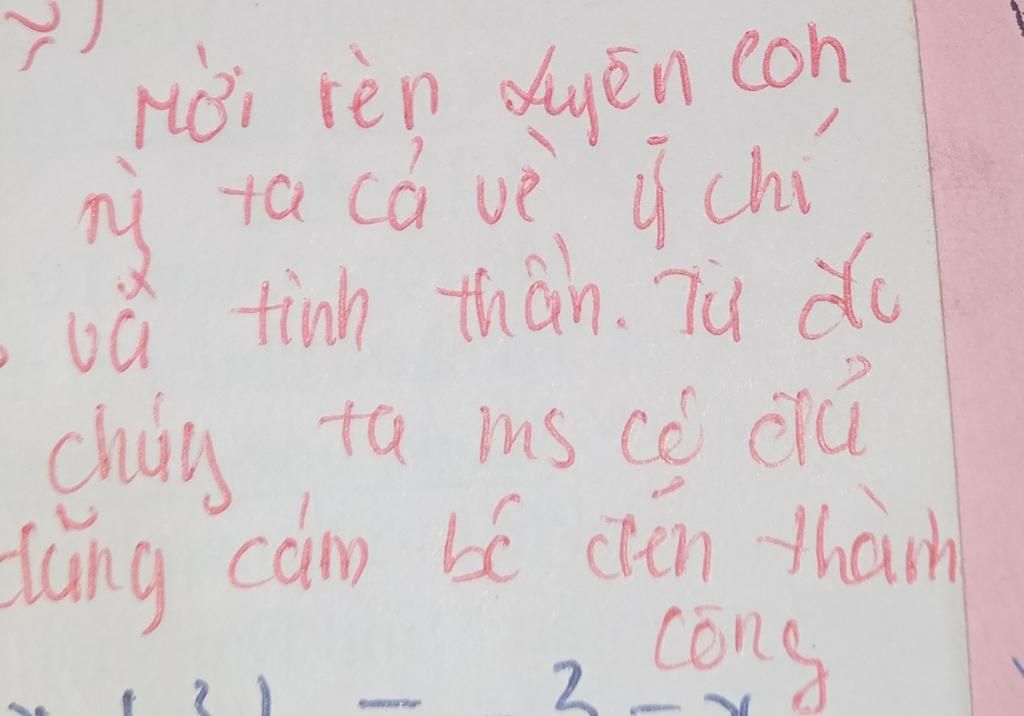 Mới rèn luyện con
ng ta cả về ý chí
và tinh thần. Từ đó
chúng ta ms có đủ
dũng cảm để đến thành
công